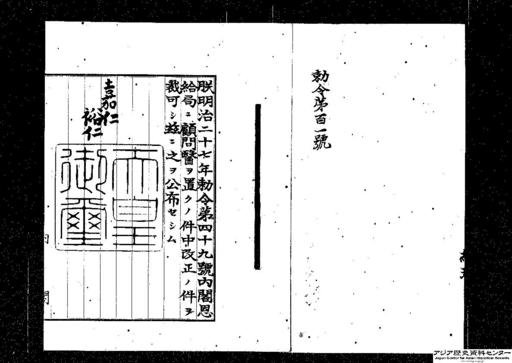 勅令第百一號
朕明治二十七年勅令第四十九號内閣恩
給局ニ顧問醫ヲ置クノ件中改正ノ件ヲ
裁可シ玆ニ之ヲ公布セシム
嘉仁
裕仁
天皇
御璽
アジア歴史資料センター
Japan Center for Asian Historical Records